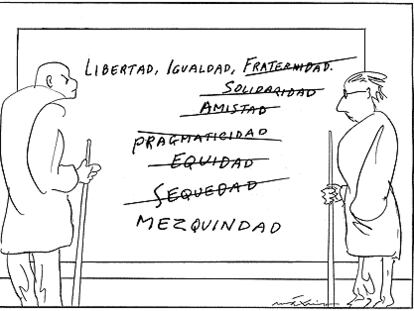 LIBERTAD, IGUALDAD, FRATERNIDAD.
SOLIDARIDAD
AMISTAD
PRAGMATICIDAD
EQUIDAD
SEQUEDAD
MEZQUINDAD